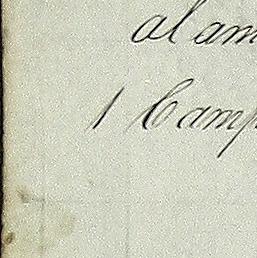 al am
1 Camp